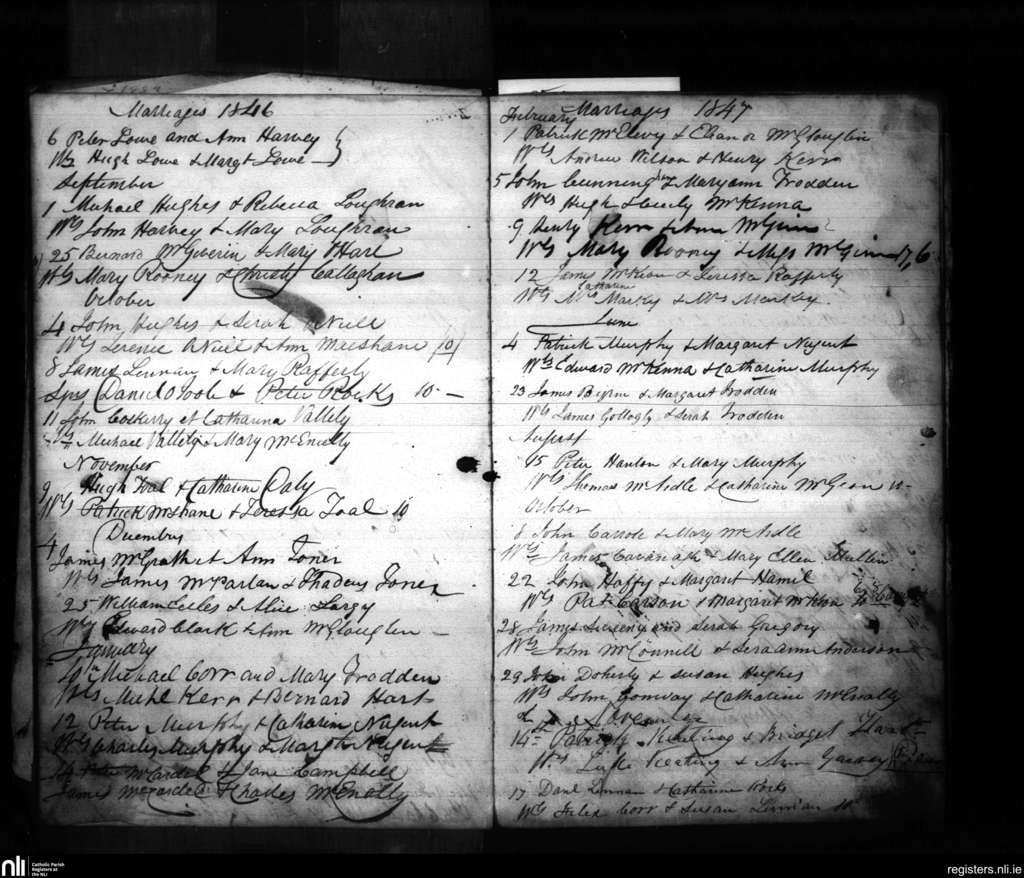 Marriages 1846
6 Peter Lowe and Ann Harvey
Ws Hugh Lowe & Margt Lowe
September
1 Michael Hughes & Rebecca Loughran
Ws John Harvey & Mary Loughran
25 Bernard McGiverin & Mary Hart
Ws Mary Rooney & Christy Callaghan
October
4 John Hughes & Serah ONeill
Ws Terence ONeill & Ann McShane 10
8 James Lennan & Mary Rafferty
Sps Daniel OToole & Peter Rocks 10
11 John et Catharina Vallely
Michael Vallely & Mary McEnally
November
9 Hugh Toal & Catharine Daly
Ws Patrick McShane & Teressa Toal 10
December
4 James McGrath et Ann Toner
Ws James McParlan & Thadeus Toner
25 William Eccles & Alice Largy
Ws Edward Clark & Ann McGloughlin
January
10th Michael Corr and Mary Frodden
Ws Michl Kerr & Bernard Hart
12 Peter Murphy & Catharine Nugent
Ws Charles Murphy & Margt Nugent
14 Peter McCardel & Jane Campbell
James McCardel & Charles McEnally
Marriages 1847
February
1 Patrick McElevy & Eleanor McGloughlin
Ws Andrew Wilson & Henry Kerr
5 John Cunningham & Maryann Frodden
Ws Hugh & McKenna
9 Henry Kerr & Anne McGinn
Ws Mary Rooney & McGinn 7,6
12 James McKeon & Teressa Rafferty
Ws Catharine Markey & Mrs Markey
June
4 Patrick Murphy & Margaret Nugent
Ws Edward McKenna & Catharine Murphy
23 James & Margaret Frodden
Ws James Gollogly & Serah Frodden
August
15 Peter Hanlon & Mary Murphy
Ws Thomas McArdle & Catharine McGeon
October
8 John & Mary McArdle
Ws James Cavanagh & Mary Ellen Mullin
22 John Haffy & Margaret Hamil
Ws Pat Carson & Margaret McKeon
28 James Sweeny and Serah Gregory
Ws John McConnell & Seraann Anderson
29 John Doherty & Susan Hughes
Ws John Conway & Catharine McEnally
November
14th Patrick Keating & Bridget
Ws Luke Keating & Ann Garvey
17 Danl Lennan & Catharine Rocks
Ws Felix Corr & Susan Lennan 10
nli
Catholic Parish
Registers at
the NLI
registers.nli.ie